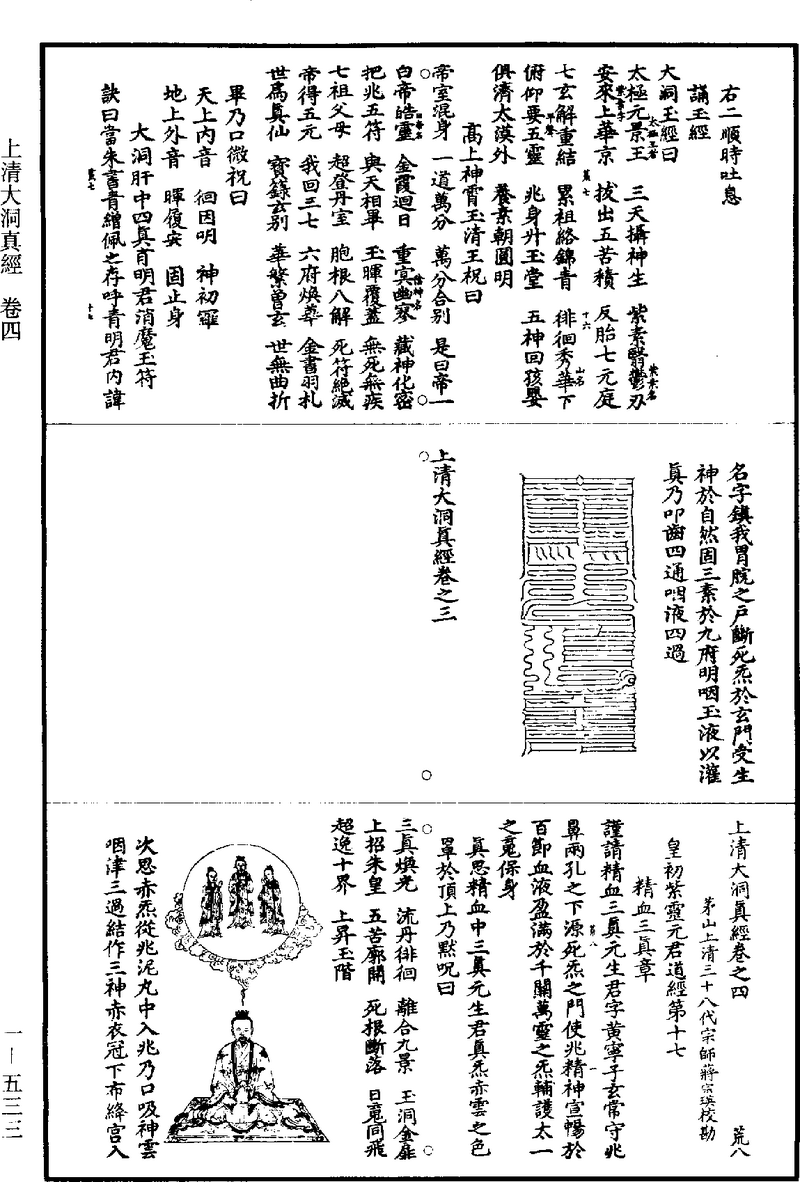 右二順時吐息
誦玉經
大洞玉經曰
太極元景王 三天攝神生 紫素翳鬱刃
安來上華京 拔出五苦積 反胎七元庭
七玄解重結 累祖絡錦青 徘徊秀華下
俯仰要五靈 兆身升玉堂 五神回孩嬰
俱濟太漠外 養素朝圓明
高上神霄玉清王祝曰
帝室混身 一道萬分 萬分合别 是曰帝一
白帝皓靈 金霞迴日 重冥幽寥 藏神化密
把兆五符 與天相畢 玉暉覆蓋 無死無疾
七祖父母 超登丹室 胞根八解 死符絕滅
帝得五元 我回三七 六府煥華 金書羽札
世爲真仙 寶錄玄别 華繁曾玄 世無曲折
畢乃口微祝曰
天上内音 徊因明 神初羅
地上外音 暉履安 固止身
大洞肝中四真育明君消魔玉符
訣曰當朱書青繒佩之存呼青明君内諱
名字鎮我胃脘之戶斷死炁於玄門受生
神於自然固三素於九府明咽玉液以灌
真乃叩齒四通咽液四過
上清大洞真經卷之三
上清大洞真經卷之四 荒八
茅山上清三十八代宗師蔣宗瑛校勘
皇初紫靈元君道經第十七
精血三真章
謹請精血三真元生君字黄寧子玄常守兆
鼻兩孔之下源死炁之門使兆精神宣暢於
百節血液盈滿於千關萬靈之炁輔護太一
之㝹保身
真思精血中三真元生君真炁赤雲之色
罩於頂上乃默呪曰
三真煥光 流丹徘徊 離合九景 玉洞金扉
上招朱皇 五苦廓開 死根斷落 日㝹同飛
超逸十界 上昇玉階
次思赤炁從兆泥丸中入兆乃口吸神雲
咽津三過結作三神赤衣冠下布絳宮入
上清大洞真經 卷四
一—五三三